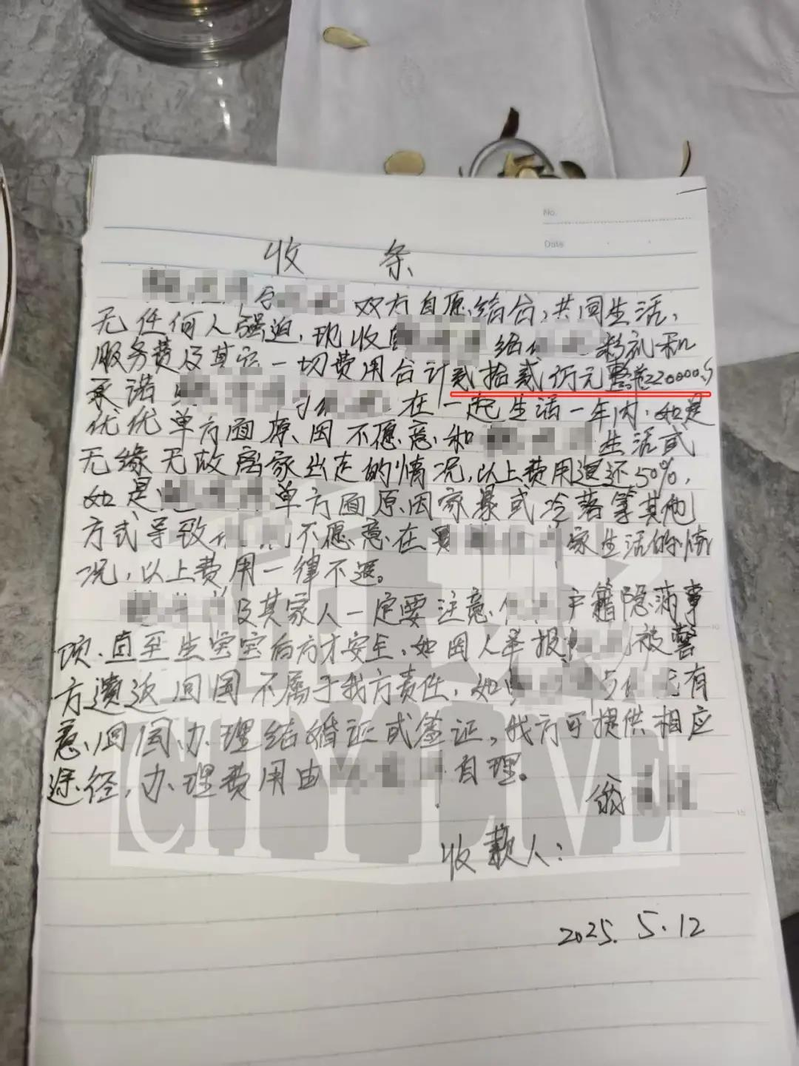 No.
Date
收 条
双方自愿结合,共同生活,
无任何人强迫,现收 给 彩礼和
服务费及其它一切费用合计贰拾贰万元整¥220000.
承诺 在一起生活一年内,如是
优优单方面原因不愿意和 生活或
无缘无故离家出走的情况,以上费用退还50%,
如是 单方面原因家暴或冷落等其他
方式导致 不愿意在 家生活的情
况,以上费用一律不退。
及其家人一定要注意 户籍隐满事
项,直至生宝宝后方才安全,如因人举报 被警
方遣返回国不属于我方责任,如 与 有
意回国办理结婚证或签证,我方可提供相应
途径,办理费用由 自理。
收款人:
2025. 5.12
CITY LIVE